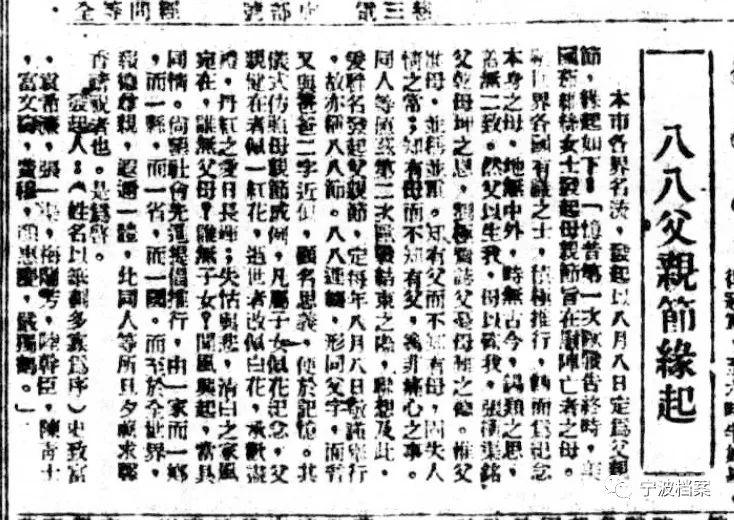 八八父親節緣起
本市各界名流,發起以八月八日定為父親
節,緣起如下:「憶昔第一次歐戰告終時,美
國女士發起母親節旨在慰陣亡者之母。
世界各國有識之士,積極推行,轉而為紀念
本身之母,地無中外,時無古今,錫類之思,
無二致。然父以生我,母以我,張銘
父乾母坤之恩,詩父母之德。惟父
惟母,並稱並重。知有父而不知有母,固失人
情之當;知有母而不知有父,非稱心之事。
同人等值茲第二次歐戰結束之際,聯想及此,
爰聯名發起父親節,定每年八月八日敬謹舉行
,故亦稱八八節。八八連綴,形同父字,而音
又與爸爸二字近似,顧名思義,便於記憶。其
儀式仿照母親節成例,凡屬子女佩花紀念,父
親健在者佩一紅花,逝世者改佩白花,承歡盡
禮,丹紅之愛日長;失怙興悲,清白之家風
宛在,誰無父母?誰無子女?聞風興起,當具
同情。尚望社會先進提倡推行,由一家而一鄉
,而一縣,而一省,而一國。而至於全世界,
報德尊親,遐邇一體,此同人等所旦夕求
香禱祝者也。是為啟。
發起人:(姓名以筆劃多寡為序)史致富
,袁希濂,張一渠,梅蘭芳,陸幹臣,陳青士
,富文壽,黃,顏惠慶,嚴獨鶴。」
宁波档案